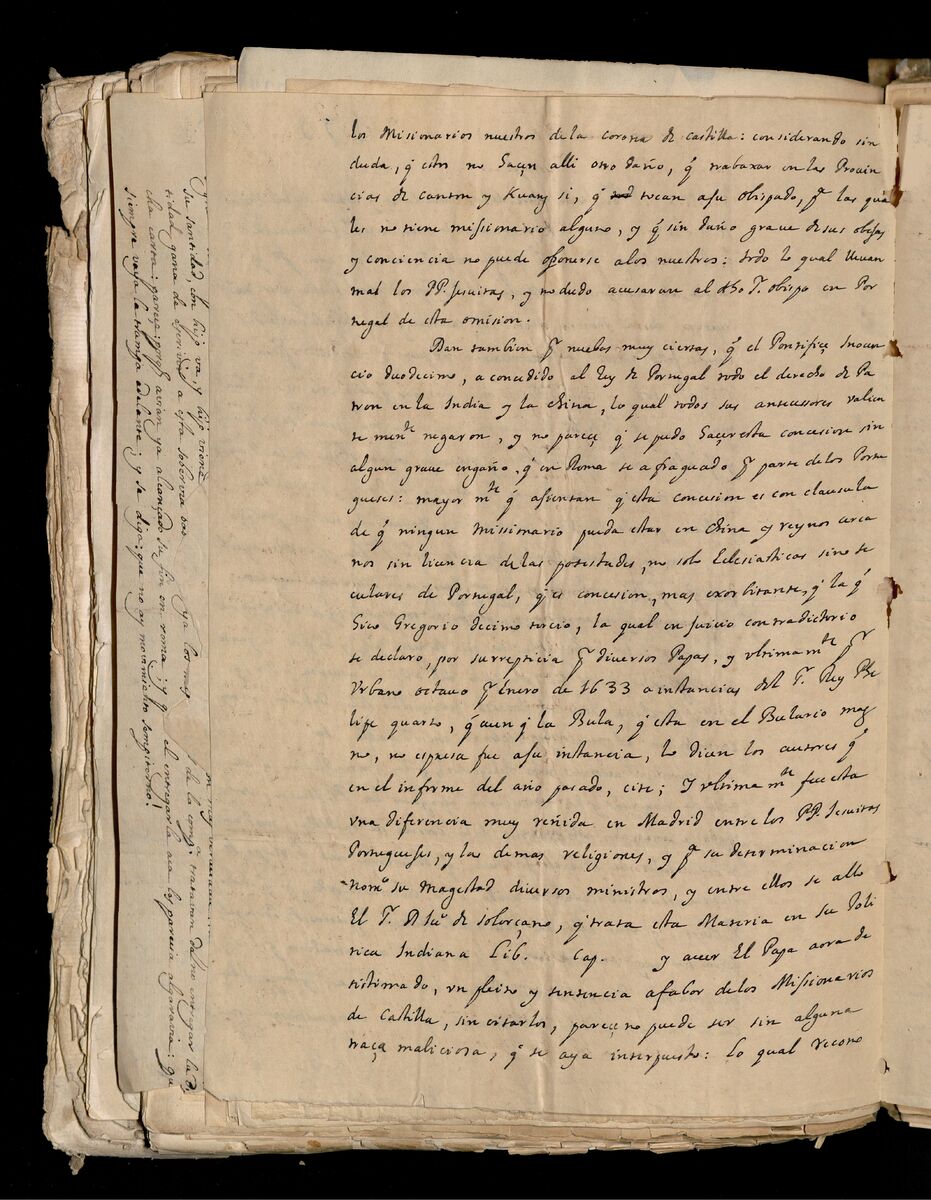 los Misionarios nuestros de la corona de castilla: considerando sin
duda, q̃ estos no haçen alli otro daño, q̃ trabaxar en las Prouin
cias de canton y Kuang si, q̃ tocan a su obispado, pᵃ las qua
les no tiene missionario alguno, y q̃ sin daño graue de sus obejas
y conciencia no puede oponerse a los nuestros: todo lo qual lleuan
mal los PP. Jesuitas, y no dudo acusaran al dho S. obispo en Por
tugal de esta omision.
Dan tambien pʳ nuebas muy ciertas, q̃ el Pontifiçe Inocen
cio duodecimo, a concedido al Rey de Portugal todo el derecho de Pa
tron en la India y la China, lo qual todos sus antecessores valien
te menᵗᵉ negaron, y no pareçe q̃ se pudo haçer esta concesion sin
algun graue engaño, q̃ en Roma se a fraguado pʳ parte de los Portu
gueses: mayor mᵗᵉ q̃ asientan q̃ esta concesion es con clausula
de q̃ ningun Missionario pueda estar en China y reynos cerca
nos sin licencia de las potestades, no solo Eclesiasticas sino se
culares de Portugal, q̃ es concesion, mas exorbitante, q̃ la q̃
hiço Gregorio decimo tercio, la qual en juicio contradictorio
se declaro, por surrepticia pʳ diversos Papas, y vltima mᵗᵉ pʳ
Vrbano octauo pʳ enero de 1633 a instancias del S. Rey Phe
lipe quarto, q̃ aun q̃ la Bula, q̃ esta en el Bulario mag
no, no espresa fue a su instancia, lo dicen los autores q̃
en el informe del año pasado, cite; I vltima mᵗᵉ fue esta
vna diferencia muy reñida en Madrid entre los PP. Jesuitas
Portugueses, y las demas religiones, y pᵃ su determinacion
nomᵒ su magestad diversos ministros, y entre ellos se allo
El S. D Juᵒ de Solorçano, q̃ trata esta Materia en su Poli
tica Indiana Lib. Cap. y auer El Papa aora de
sistimado, vn pleito y sentencia a fabor de los Missionarios
de Castilla, sin citarlos, pareçe no puede ser sin alguna
traça maliciosa, q̃ se aya interpuesto: Lo qual recono
Su santidad, con hijo va, y hijo viene
tidad gana de a esta soberuia
cha carta; pareçe; porq̃ avian ya alcançado su fin en roma; y q̃ el entregarla aca les parecia algarauia; q̃
siempre vaya la trampa adelante; y se diga: que no ay movimiento sempiterno!
ya los muy
de la compᵃ trataron del no entregar la di